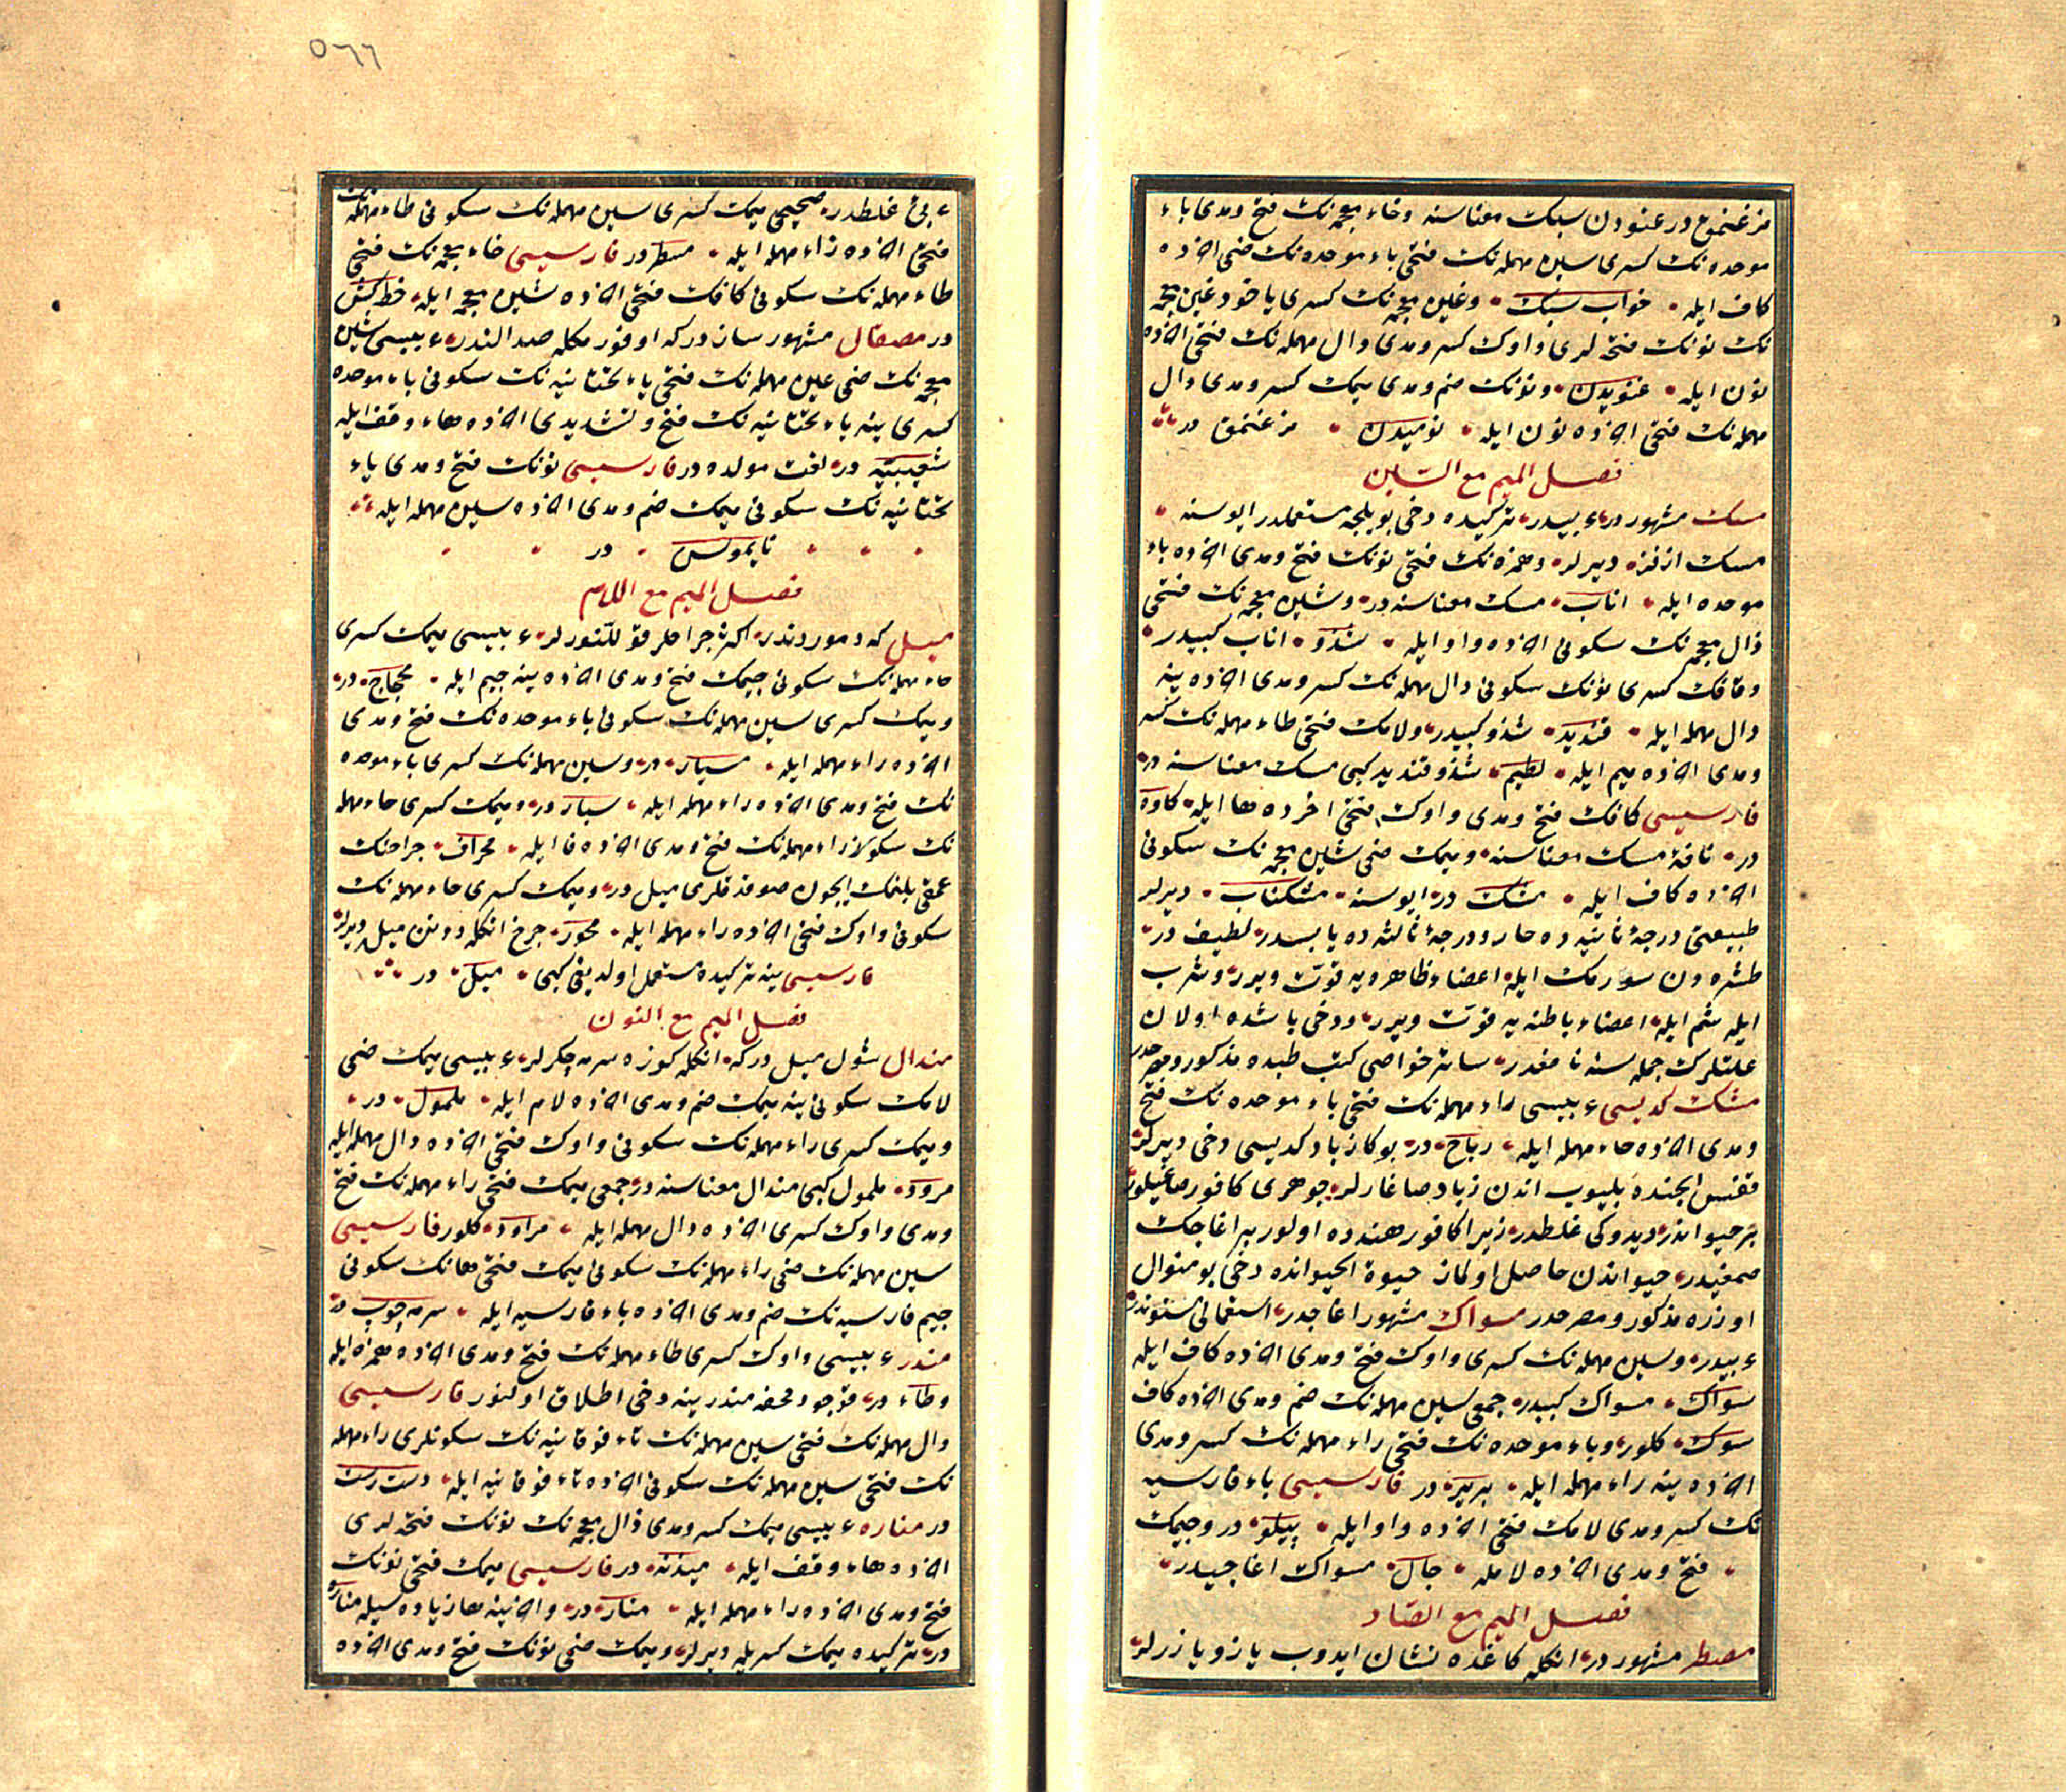 مزغنمق در عنودن سبك معناسنه وخاء معجمه نك فتح ومدى باء
موحده نك كسرى سين مهمله نك فتحى باء موحده نك ضمى اخرده
كاف ايله خواب سبك وغين معجمه نك كسرى ياخود غين معجمه
نك نونك فتحه لرى واوك كسر ومدى دال مهمله نك فتحى اخرده
نون ايله غنويدن ونونك ضم ومدى ميمك كسر ومدى دال
مهمله نك فتحى اخرده نون ايله نوميدن مزغنمق در
فصل الميم مع السين
مسك مشهوردر عربيسيدر تركيده دخى بويلجه مستعملدر ايوسنه
مسك ازفر ديرلر وهمزه نك فتحى نونك فتح ومدى اخرده باء
موحده ايله اناب مسك معناسنه در وشين معجمه نك فتحى
ذال معجمه نك سكونى اخرده واو ايله شذو اناب كبيدر
وقافك كسرى نونك سكونى دال مهمله نك كسر ومدى اخرده ينه
دال مهمله ايله قنديد شذو كبيدر ولامك فتحى طاء مهمله نك كسر
ومدى اخرده ميم ايله لطيم شذو وقنديد كبى مسك معناسنه در
فارسيسى كافك فتح ومدى واوك فتحى اخرده ها ايله كاوه
در نافۀ مسك معناسنه وميمك ضمى شين معجمه نك سكونى
اخرده كاف ايله مشك در ايوسنه مشكناب ديرلر
طبيعتى درجۀ ثانيه ده حار ودرجۀ ثالثه ده يابسدر لطيف در
طشره دن سورمك ايله اعضاء ظاهره يه قوت ويرر وشرب
ايله شم ايله اعضاء باطنه يه قوت ويرر ودخى باشده اولان
علتلرك جمله سنه نافعدر سائر خواصى كتب طبده مذكور
مشك كديسى عربيسى راء مهمله نك فتحى باء موحده نك فتح
ومدى اخرده حاء مهمله ايله رباح در بوكا زباد كديسى دخى ديرلر
قفس ايچنده بليوب اندن زباد صاغارلر جوهرى كافور صاغيلور
بر حيواندر ديدوكى غلطدر زيرا كافور هنده اولور بر اغاجك
صمغيدر حيواندن حاصل اولماز حيوة الحيوانده دخى بو منوال
اوزره مذكور ومصرحدر مسواك مشهور اغاجدر استعمالى سنتدر
عربيدر وسين مهمله نك كسرى واوك فتح ومدى اخرده كاف ايله
سواك مسواك كبيدر جمعى سين مهمله نك ضم ومدى اخرده كاف
سوك كلور وباء موحده نك فتحى راء مهمله نك كسر ومدى
اخرده ينه راء مهمله ايله برير در فارسيسى باء فارسيه
نك كسر ومدى لامك فتحى اخرده واو ايله پيلو در وجيمك
فتح ومدى اخرده لامله جال مسواك اغاجيدر
فصل الميم مع الصاد
مصطر مشهوردر انكله كاغده نشان ايدوب يازو يازرلر
غلطدر صحيحى ميمك كسرى سين مهمله نك سكونى طاء مهمله نك
فتحى اخرده راء مهمله ايله مسطر در فارسيسى خاء معجمه نك فتحى
طاء مهمله نك سكونى كافك فتحى اخرده شين معجمه ايله خط كش
در مصقال مشهور سازدركه اوفورمكله صدالنور عربيسى شين
معجمه نك ضمى عين مهمله نك فتحى ياء تحتانيه نك سكونى باء موحده
كسرى ينه ياء تحتانيه نك فتح وتشديدى اخرده هاء وقف ايله
شعيبيه در لغت مولده در فارسيسى نونك فتح ومدى ياء
تحتانيه نك سكونى ميمك ضم ومدى اخرده سين مهمله ايله
نايموس در
فصل الميم مع اللام
ميل كه دموردندر اكثر جراحلر قوللنورلر عربيسى ميمك كسرى
حاء مهمله نك سكونى جيمك فتح ومدى اخرده ينه جيم ايله محجاج در
وميمك كسرى سين مهمله نك سكونى باء موحده نك فتح ومدى
اخرده راء مهمله ايله مسبار در وسين مهمله نك كسرى باء موحده
نك فتح ومدى اخرده راء مهمله ايله سبار در وميمك كسرى حاء مهمله
نك سكونى راء مهمله نك فتح ومدى اخرده فا ايله محراف جراحتك
عمقى بلنمك ايچون صوقدقلرى ميل در وميمك كسرى حاء مهمله نك
سكونى واوك فتحى اخرده راء مهمله ايله محور چرخ انكله دونن ميل ديرلر
فارسيسى ينه تركيده مستعمل اولديغى كبى ميل در
فصل الميم مع النون
مندال شول ميل دركه انكله كوزه سرمه چكرلر عربيسى ميمك ضمى
لامك سكونى ينه ميمك ضم ومدى اخرده لام ايله ملمول در
وميمك كسرى راء مهمله نك سكونى واوك فتحى اخرده دال مهمله ايله
مرود ملمول كبى مندال معناسنه در جمعى ميمك فتحى راء مهمله نك فتح
ومدى واوك كسرى اخرده دال مهمله ايله مراود كلور فارسيسى
سين مهمله نك ضمى راء مهمله نك سكونى ميمك فتحى هانك سكونى
جيم فارسيه نك ضم ومدى اخرده باء فارسيه ايله سرمه چوپ در
مندر عربيسى واوك كسرى طاء مهمله نك فتح ومدى اخرده همزه ايله
وطاء در قوجو ومحفه مندرينه دخى اطلاق اولنور فارسيسى
دال مهمله نك فتحى سين مهمله نك تاء فوقانيه نك سكونلرى راء مهمله
نك فتحى سين مهمله نك سكونى اخرده تاء فوقانيه ايله دست رست
در مناره عربيسى ميمك كسر ومدى ذال معجمه نك نونك فتحه لرى
اخرده هاء وقف ايله ميذنه در فارسيسى ميمك فتحى نونك
فتح ومدى اخرده راء مهمله ايله منار در واخرينه ها زياده سيله مناره
در تركيده ميمك كسريله ديرلر وميمك ضمى نونك فتح ومدى اخرده